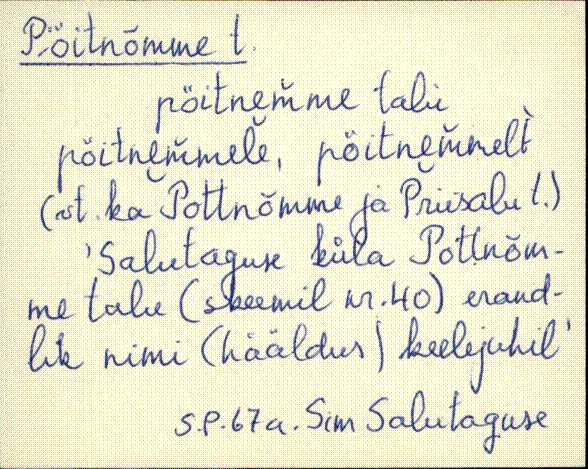 Pöitnõmme t.
pöitnem̆me talu
pöitnem̆mele, pöitnem̆melt
(vt. ka Pottnõmme ja Priisalu t.)
'Salutaguse küla Pottnõm-
me talu (skeemil nr. 40) erand-
lik nimi (hääldus) keelejuhil'
S.P. 67 a. Sim Salutaguse